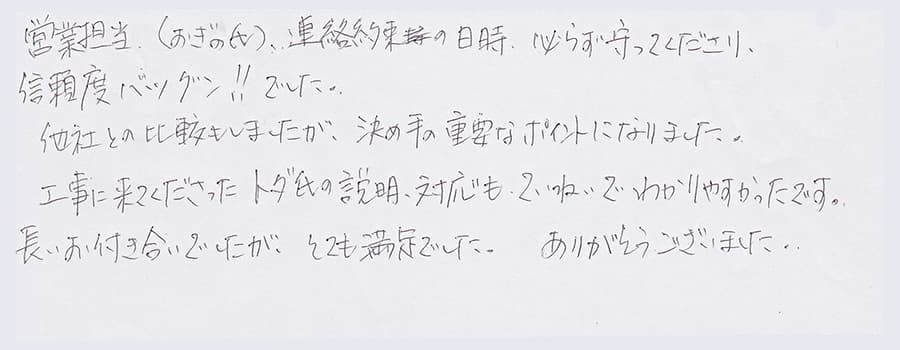 営業担当(おぎの氏)、連絡約束の日時、必らず守ってくださり、
信頼度バツグン!!でした。
他社との比較もしましたが、決め手の重要なポイントになりました。
工事に来てくださったトダ氏の説明、対応も、ていねいでわかりやすかったです。
長いお付き合いでしたが、とても満足でした。 ありがとうございました。